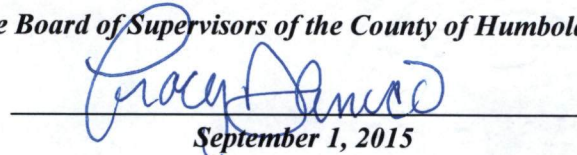 e Board of Supervisors of the County of Humbol
Tracy
September 1, 2015